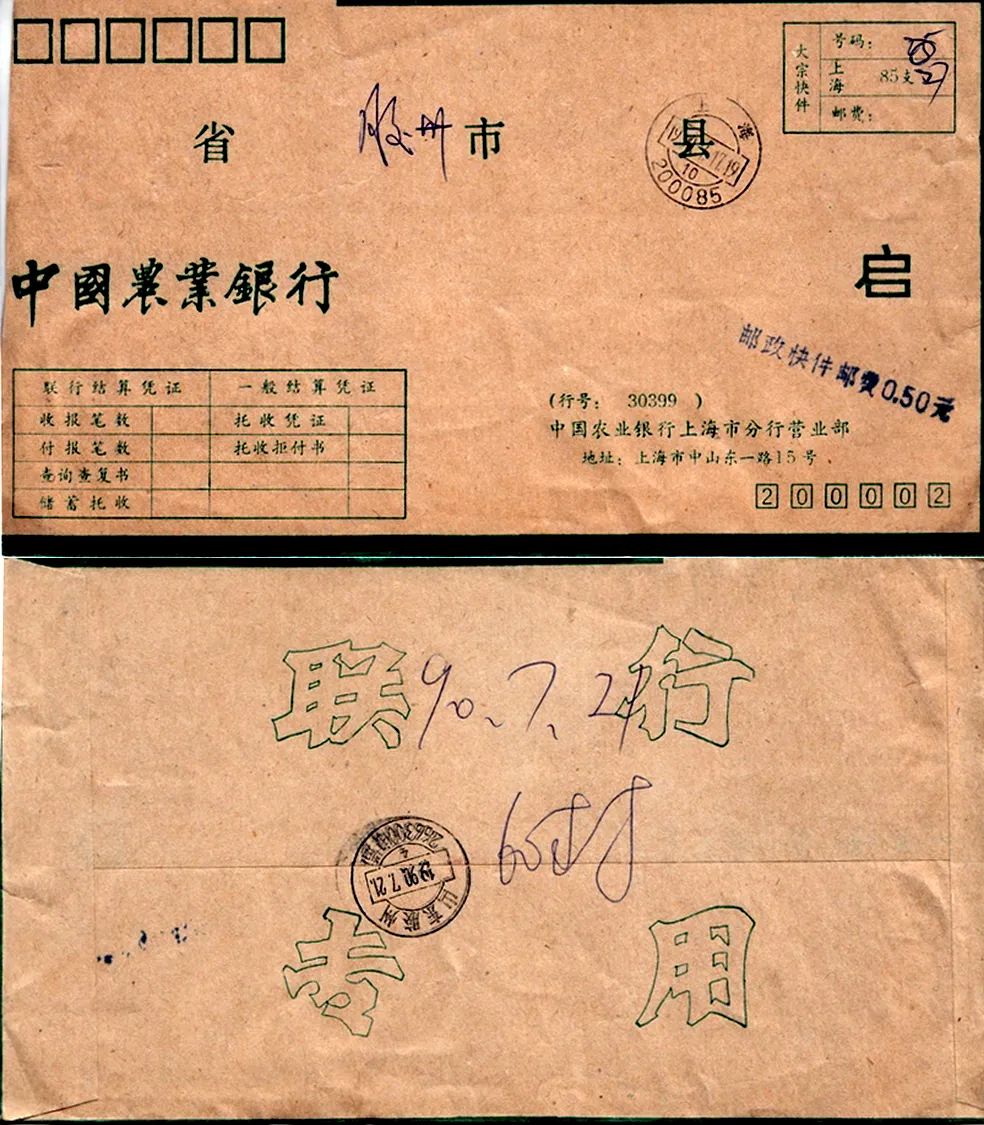 大宗快件
号码：
上海 85支
邮费：
省 胶州 市 县
上海
17.19
10
200085
中國農業銀行
启
邮政快件邮费0.50元
联行结算凭证 一般结算凭证
收报笔数 托收凭证
付报笔数 托收拒付书
查询查复书
储蓄托收
(行号： 30399 )
中国农业银行上海市分行营业部
地址：上海市中山东一路15号
200002
联行
90.7.21
266300
4
1990.7.21
山东胶州
专用